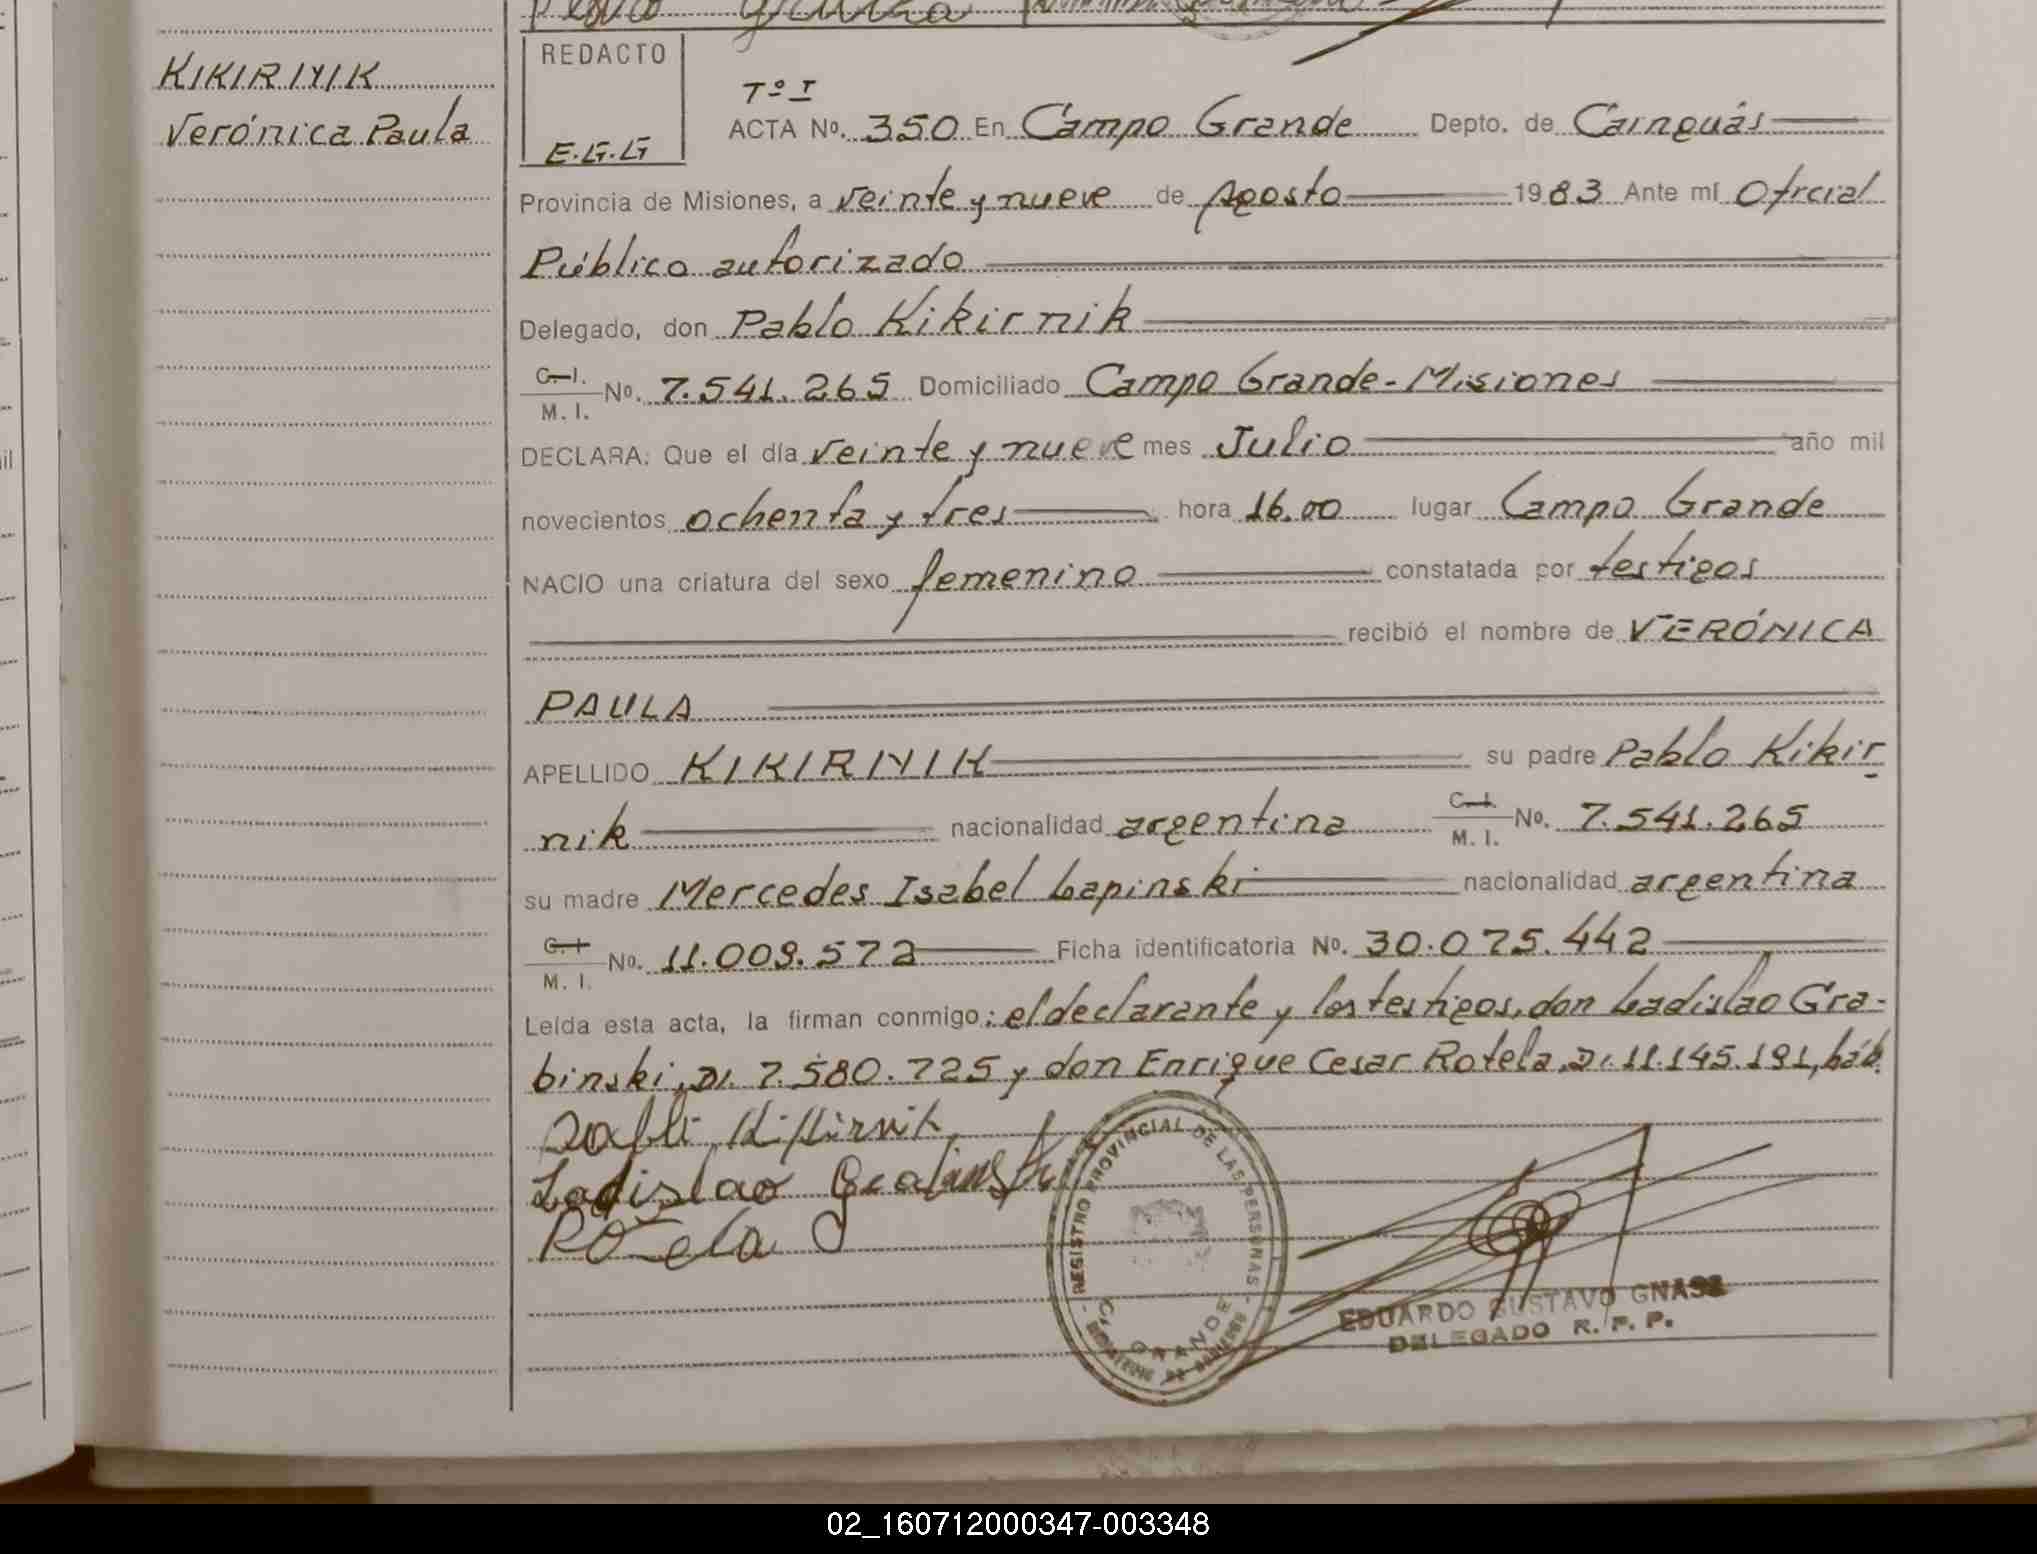 KIKIRNIK
Verónica Paula
REDACTO
E.G.G
Tº I
ACTA Nº. 350 En Campo Grande Depto. de Cainguás
Provincia de Misiones, a veinte y nueve de Agosto 1983 Ante mí Oficial
Público autorizado
Delegado, don Pablo Kikirnik
C.I. M.I. Nº. 7.541.265 Domiciliado Campo Grande-Misiones
DECLARA: Que el día veinte y nueve mes Julio año mil
novecientos ochenta y tres hora 16.00 lugar Campo Grande
NACIO una criatura del sexo femenino constatada por testigos
recibió el nombre de VERÓNICA
PAULA
APELLIDO KIKIRNIK su padre Pablo Kikir
nik nacionalidad argentina C.I. M.I. Nº. 7.541.265
su madre Mercedes Isabel Lapinski nacionalidad argentina
C.I. M.I. Nº. 11.009.572 Ficha identificatoria Nº. 30.075.442
Leída esta acta, la firman conmigo: el declarante y los testigos, don Ladislao Gra-
binski, DI. 7.580.725 y don Enrique Cesar Rotela, DI. 11.145.191, háb.
Pablo Kikirnik
Ladislao Grabinski
Rotela
REGISTRO PROVINCIAL DE LAS PERSONAS
C. GRANDE
EDUARDO GUSTAVO GNASS
DELEGADO R. P. P.
02_160712000347-003348